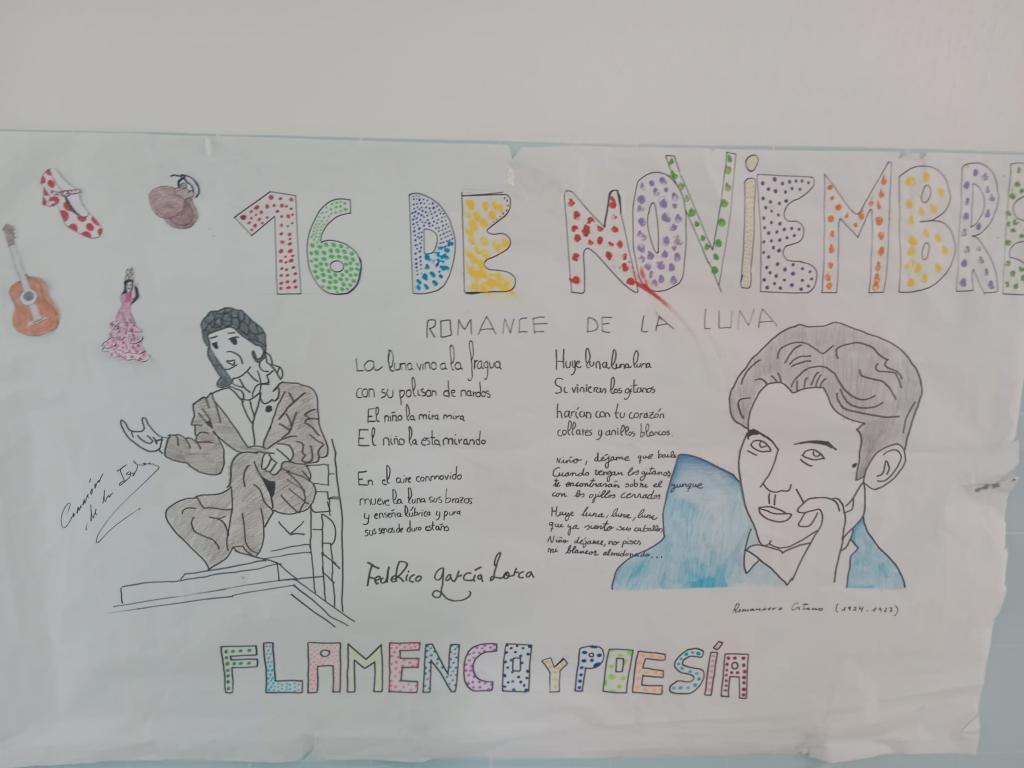 16 DE NOVIEMBRE
ROMANCE DE LA LUNA
La luna vino a la fragua
con su polison de nardos
El niño la mira mira
El niño la esta mirando
En el aire conmovido
mueve la luna sus brazos
y enseña lúbrica y pura
sus senos de duro estaño
Federico García Lorca
Huye luna luna luna
Si vinieran los gitanos
harían con tu corazón
collares y anillos blancos.
Niño, déjame que baile
Cuando vengan los gitanos
te encontrarán sobre el yunque
con los ojillos cerrados
Huye luna, luna, luna
que ya siento sus caballos
Niño déjame, no pises
mi blancor almidonado...
Camarón
de la Isla
Romancero Gitano (1924-1927)
FLAMENCO Y POESÍA